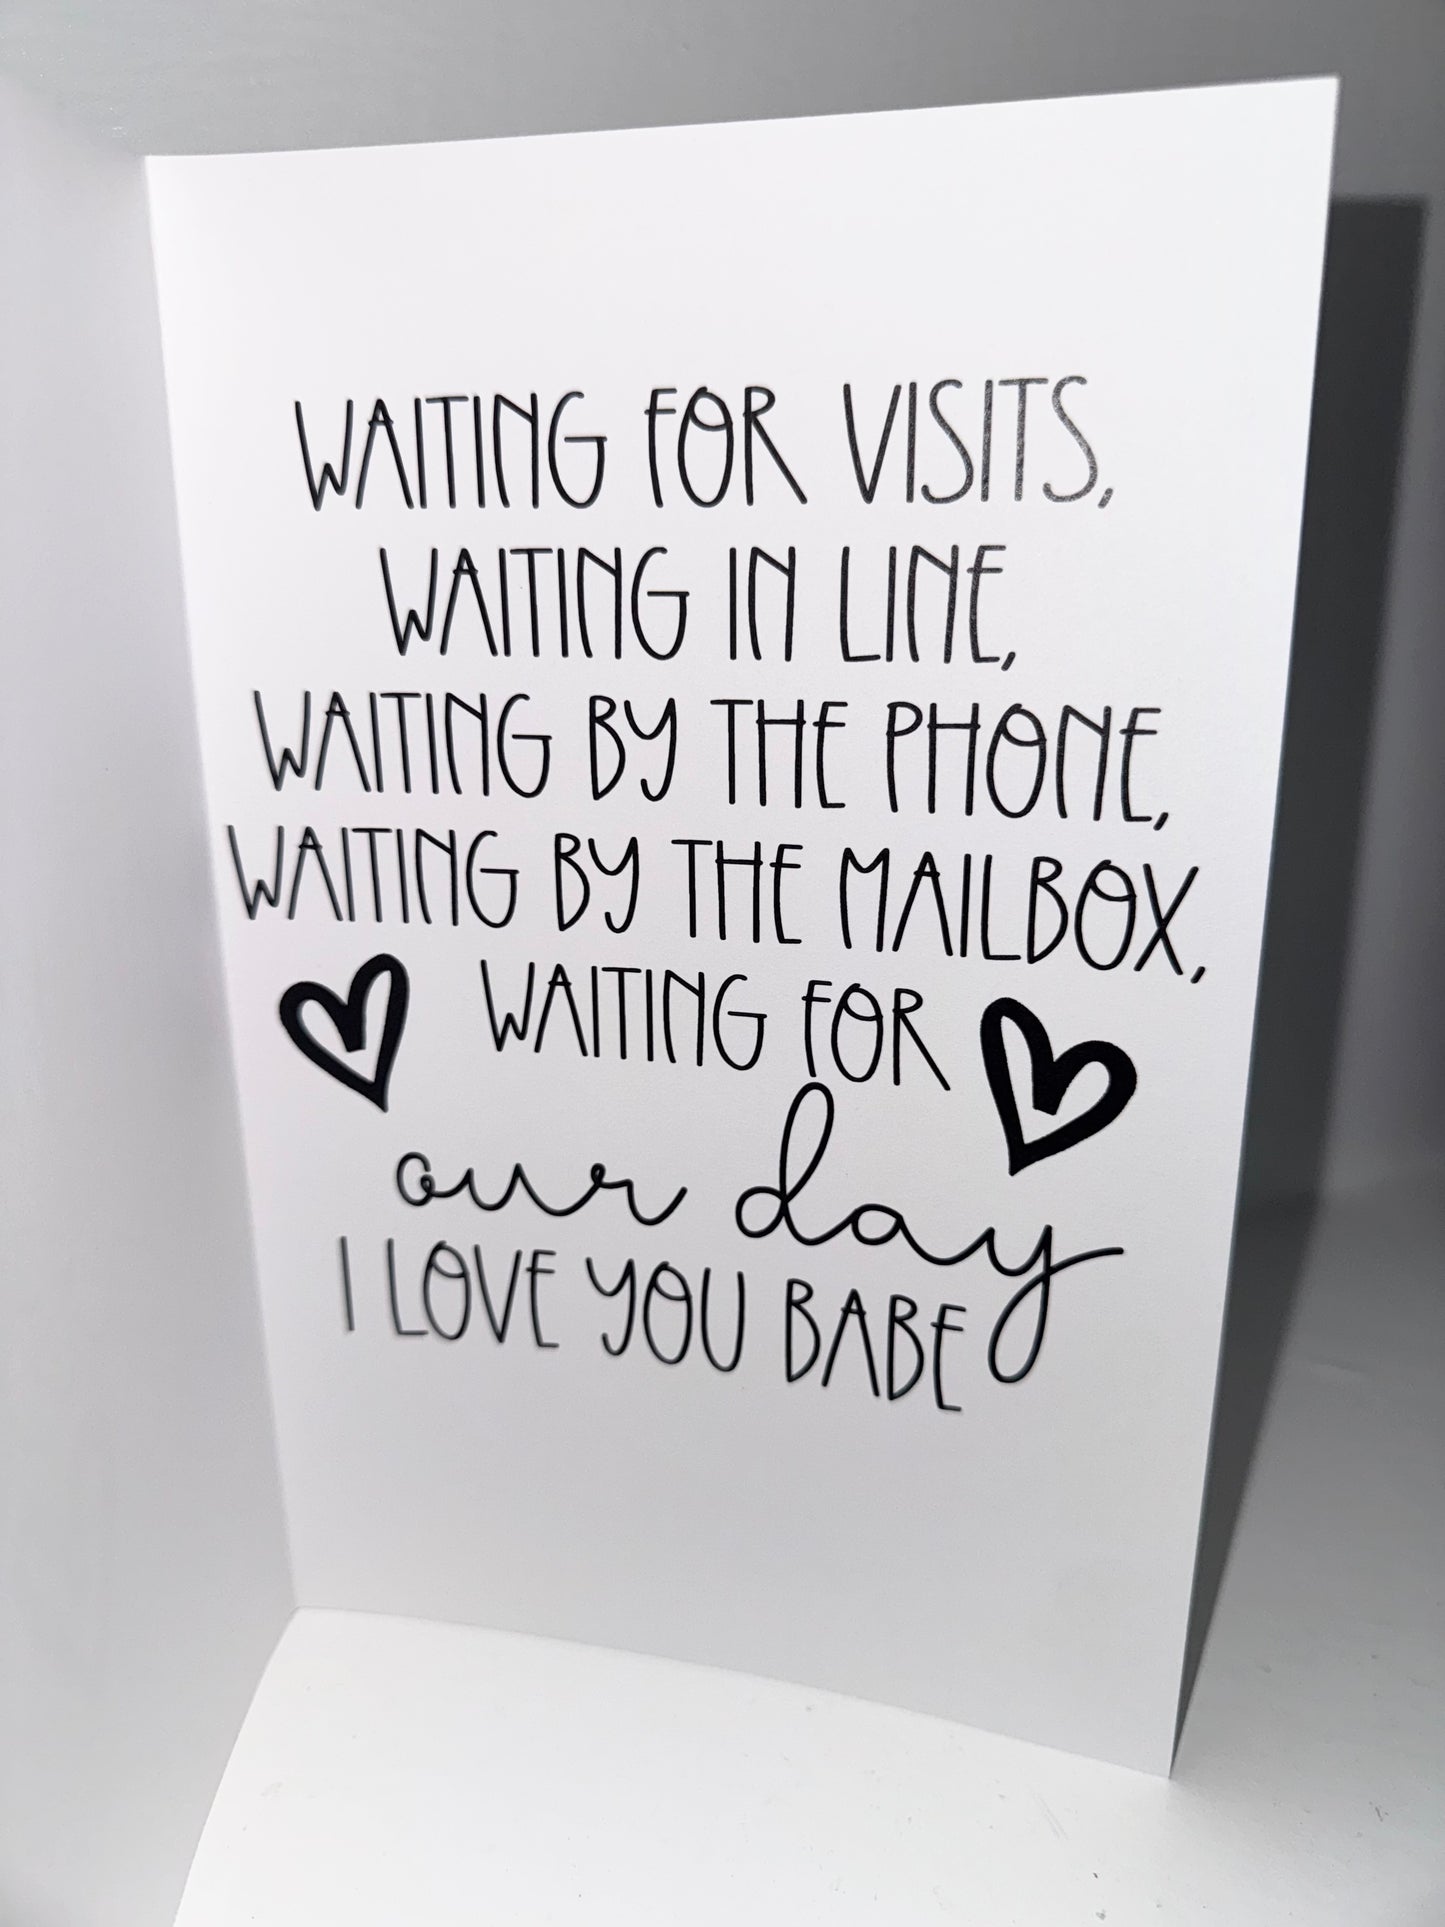 WAITING FOR VISITS,
WAITING IN LINE,
WAITING BY THE PHONE,
WAITING BY THE MAILBOX,
WAITING FOR
our day
I LOVE YOU BABE